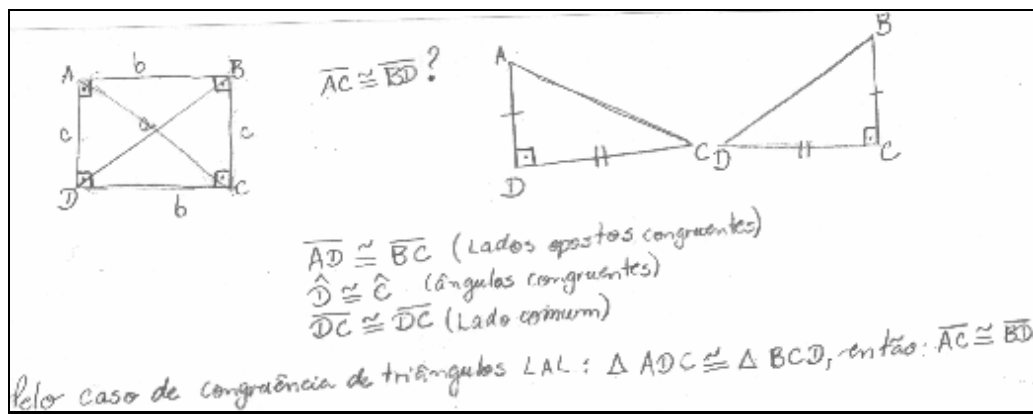 A b B
c a c
D b C
AC ≅ BD ?
A
D C
B
D C
AD ≅ BC (Lados opostos congruentes)
D̂ ≅ Ĉ (ângulos congruentes)
DC ≅ DC (Lado comum)
Pelo caso de congruência de triângulos LAL: Δ ADC ≅ Δ BCD, então: AC ≅ BD